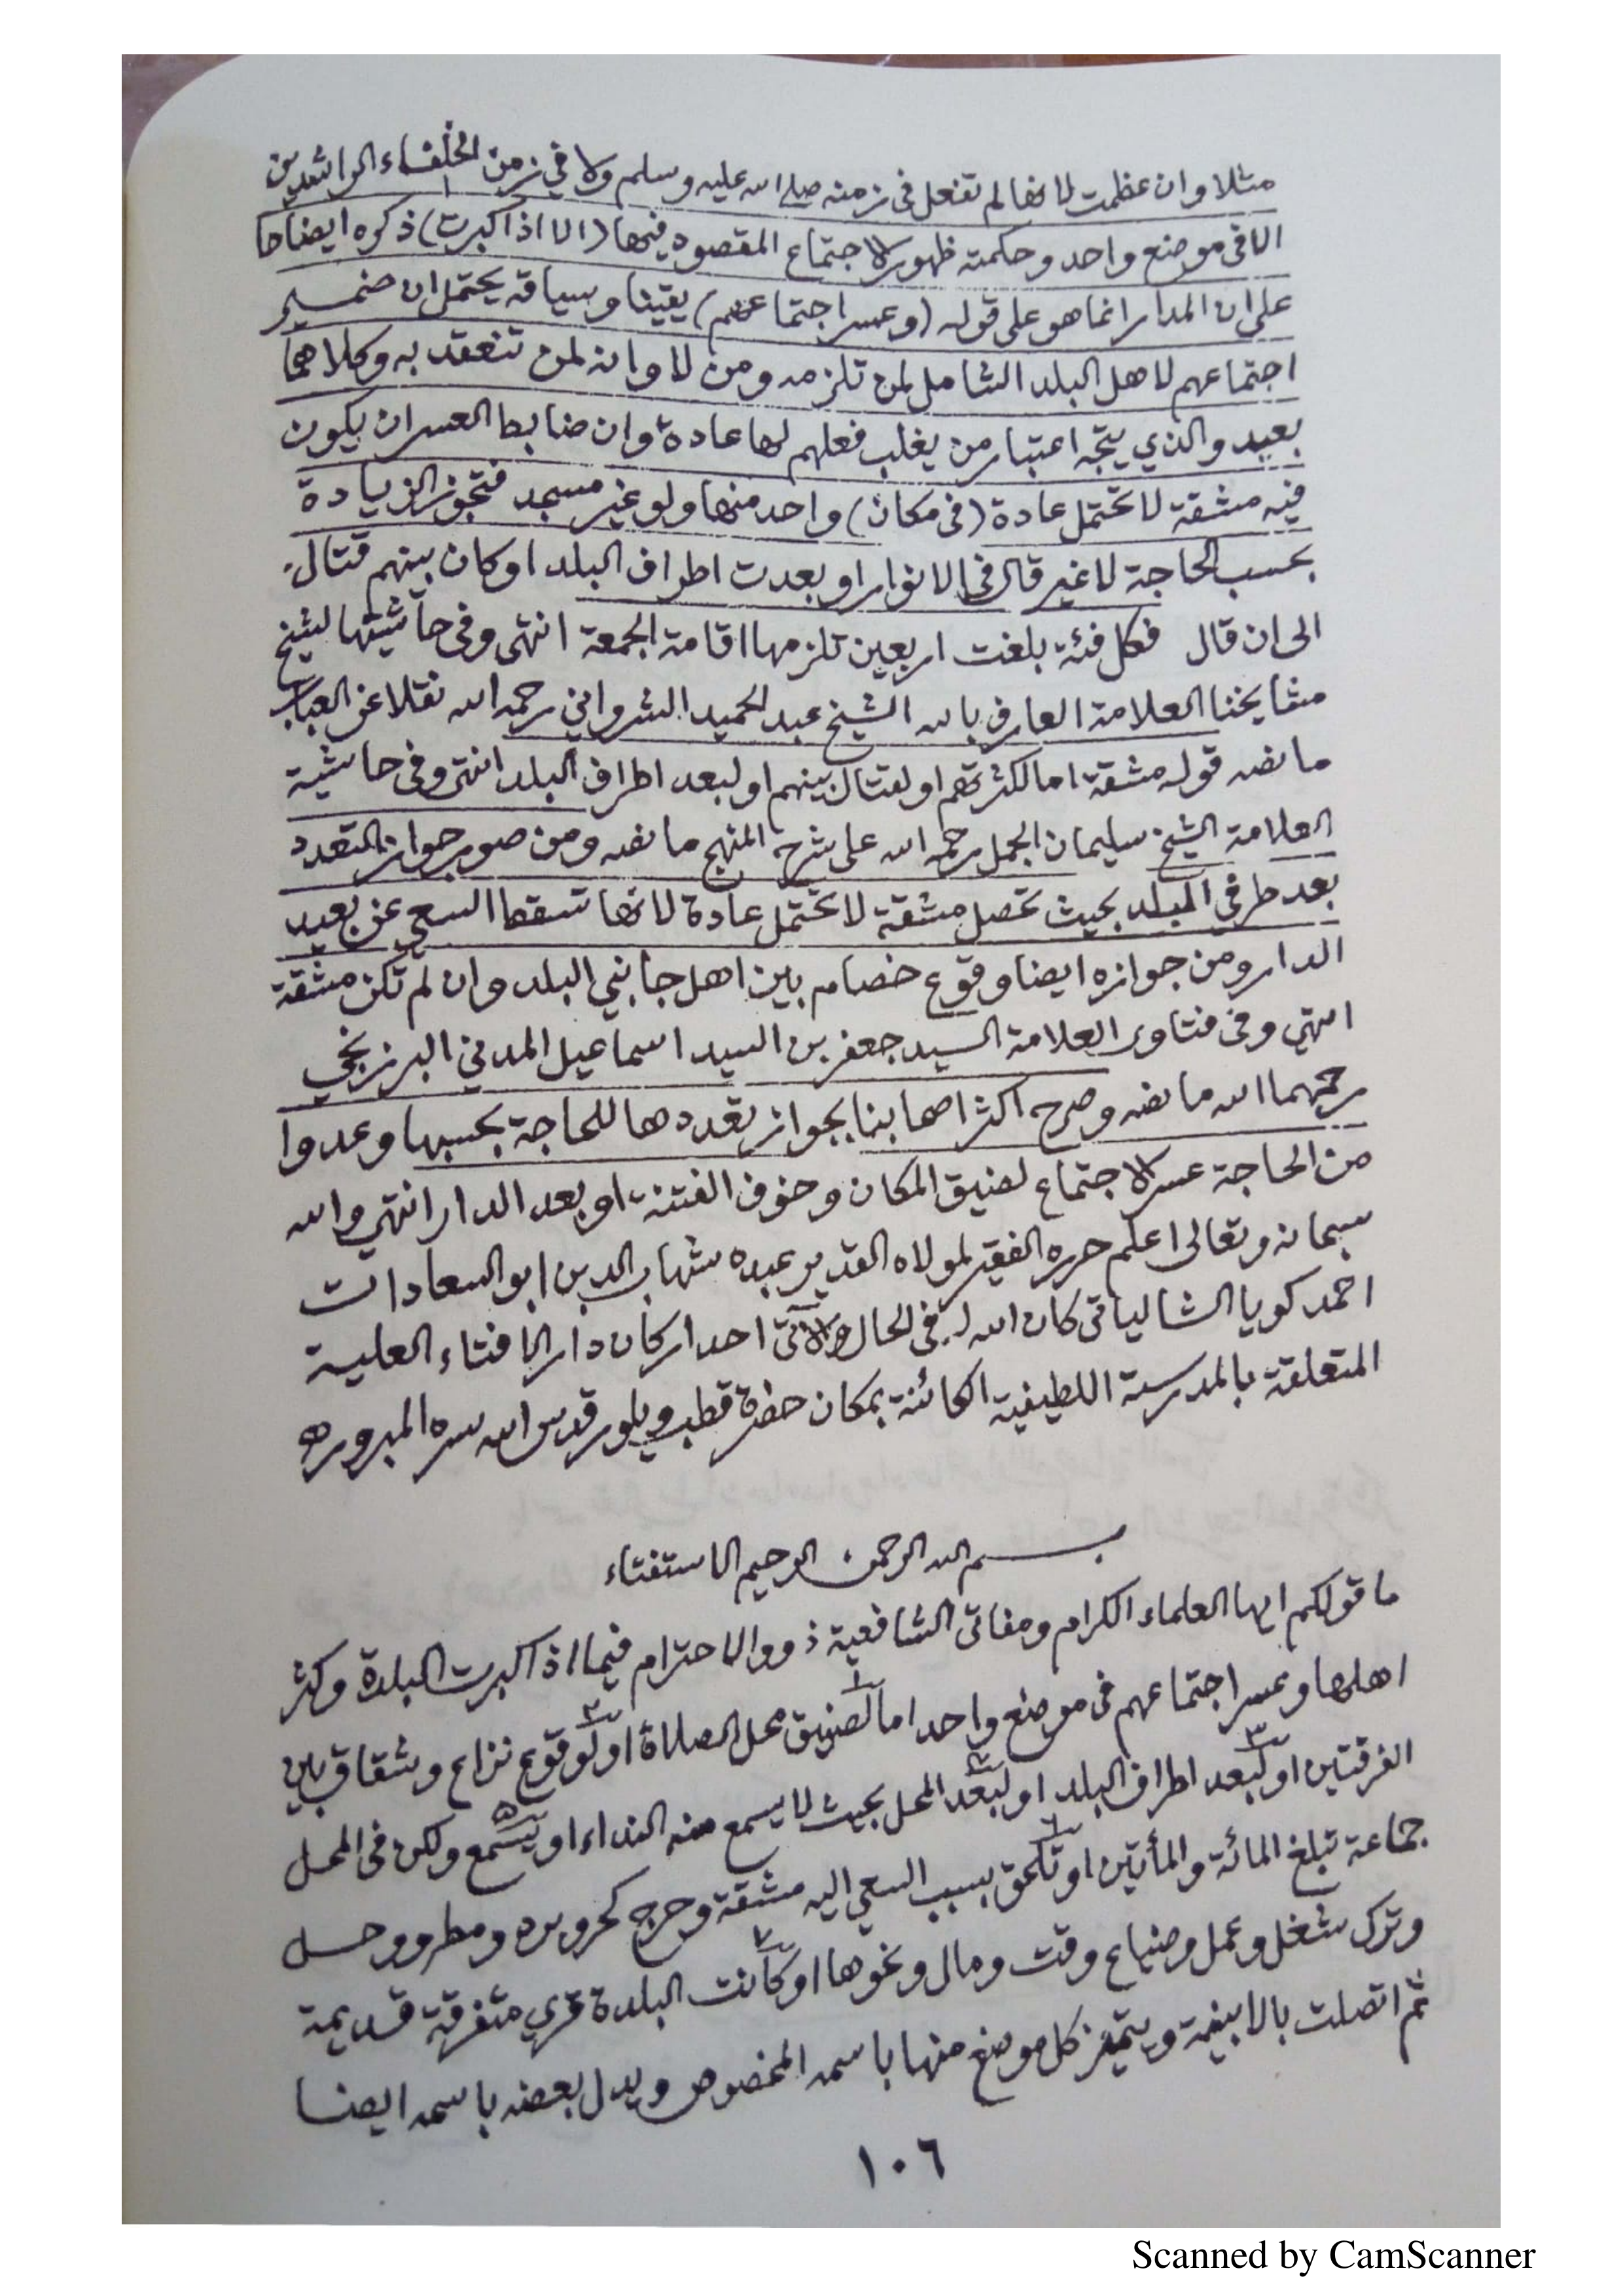 مثلا وان عظمت لانها لم تفعل في زمنه صلى الله عليه وسلم ولا في زمن الخلفاء الراشدين
الا في موضع واحد وحكمته ظهور الاجتماع المقصود فيها (الا اذا كبرت) ذكره ايضاحا
على ان المدار انما هو على قوله (وعسر اجتماعهم) يقينا وسياقه يحتمل ان ضمير
اجتماعهم لاهل البلد الشامل لمن تلزمه ومن لا وانه لمن تنعقد به وكلاهما
بعيد والذي يتجه اعتبار من يغلب فعلهم لها عادة وان ضابط العسر ان يكون
فيه مشقة لا تحتمل عادة (في مكان) واحد منها ولو غير مسجد فتجوز الزيادة
بحسب الحاجة لا غير قال في الانوار او بعدت اطراف البلد او كان بينهم قتال
الى ان قال فكل فئة بلغت اربعين تلزمها اقامة الجمعة انتهى وفي حاشيتها لشيخ
مشايخنا العلامة العارف بالله الشيخ عبد الحميد الشرواني رحمه الله نقلا عن العباب
ما نصه قوله مشقة اما لكثرتهم او لقتال بينهم او لبعد اطراف البلد انتهى وفي حاشية
العلامة الشيخ سليمان الجمل رحمه الله على شرح المنهج ما نصه ومن صور جواز التعدد
بعد طرفي البلد بحيث تحصل مشقة لا تحتمل عادة لانها تسقط السعي عن بعيد
الدار ومن جوازه ايضا وقوع خصام بين اهل جانبي البلد وان لم تكن مشقة
انتهى وفي فتاوى العلامة السيد جعفر بن السيد اسماعيل المدني البرزنجي
رحمهما الله ما نصه وصرح اكثر اصحابنا بجواز تعددها للحاجة بحسبها وعدوا
من الحاجة عسر الاجتماع لضيق المكان وخوف الفتنة او بعد الدار انتهى والله
سبحانه وتعالى اعلم حرره الفقير لمولاه القدير عبده شهاب الدين ابو السعادات
احمد كويا الشالياتي كان الله له في الحال والآتي احد اركان دار الافتاء العلية
المتعلقة بالمدرسة اللطيفية الكائنة بمكان حضرة قطب ويلور قدس الله سره المبرور
بسم الله الرحمن الرحيم الاستفتاء
ما قولكم ايها العلماء الكرام ومفاتي الشافعية ذووا الاحترام فيما اذا كبرت البلدة وكثر
اهلها وعسر اجتماعهم في موضع واحد اما لضيق محل الصلاة او لوقوع نزاع وشقاق بين
الفرقتين او لبعد اطراف البلد او لبعد المحل بحيث لا يسمع منه النداء او يسمع ولكن في المحل
جماعة تبلغ المائة والمأتين او تلحق بسبب السعي اليه مشقة وحرج كحر وبرد ومطر ووحل
وترك شغل وعمل وضياع وقت ومال ونحوها او كانت البلدة قرى متفرقة قديمة
ثم اتصلت بالابنية ويتميز كل موضع منها باسمه المخصوص ويدل بعضه باسمه ايضا
١٠٦
Scanned by CamScanner